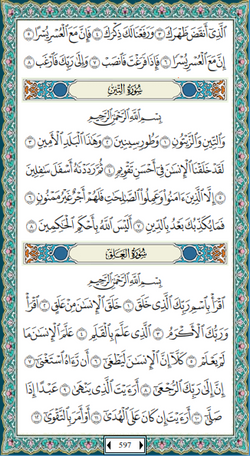 ٱلَّذِىٓ أَنقَضَ ظَهْرَكَ ٣ وَرَفَعْنَا لَكَ ذِكْرَكَ ٤ فَإِنَّ مَعَ ٱلْعُسْرِ يُسْرًا ٥
إِنَّ مَعَ ٱلْعُسْرِ يُسْرًا ٦ فَإِذَا فَرَغْتَ فَٱنصَبْ ٧ وَإِلَىٰ رَبِّكَ فَٱرْغَب ٨
سُورَةُ التِّينِ
بِسْمِ ٱللَّهِ ٱلرَّحْمَٰنِ ٱلرَّحِيمِ
وَٱلتِّينِ وَٱلزَّيْتُونِ ١ وَطُورِ سِينِينَ ٢ وَهَٰذَا ٱلْبَلَدِ ٱلْأَمِينِ ٣
لَقَدْ خَلَقْنَا ٱلْإِنسَٰنَ فِىٓ أَحْسَنِ تَقْوِيمٍ ٤ ثُمَّ رَدَدْنَٰهُ أَسْفَلَ سَٰفِلِينَ
٥ إِلَّا ٱلَّذِينَ ءَامَنُوا۟ وَعَمِلُوا۟ ٱلصَّٰلِحَٰتِ فَلَهُمْ أَجْرٌ غَيْرُ مَمْنُونٍ ٦
فَمَا يُكَذِّبُكَ بَعْدُ بِٱلدِّينِ ٧ أَلَيْسَ ٱللَّهُ بِأَحْكَمِ ٱلْحَٰكِمِينَ ٨
سُورَةُ العَلَقِ
بِسْمِ ٱللَّهِ ٱلرَّحْمَٰنِ ٱلرَّحِيمِ
ٱقْرَأْ بِٱسْمِ رَبِّكَ ٱلَّذِى خَلَقَ ١ خَلَقَ ٱلْإِنسَٰنَ مِنْ عَلَقٍ ٢ ٱقْرَأْ
وَرَبُّكَ ٱلْأَكْرَمُ ٣ ٱلَّذِى عَلَّمَ بِٱلْقَلَمِ ٤ عَلَّمَ ٱلْإِنسَٰنَ مَا
لَمْ يَعْلَمْ ٥ كَلَّآ إِنَّ ٱلْإِنسَٰنَ لَيَطْغَىٰٓ ٦ أَن رَّءَاهُ ٱسْتَغْنَىٰٓ ٧
إِنَّ إِلَىٰ رَبِّكَ ٱلرُّجْعَىٰٓ ٨ أَرَءَيْتَ ٱلَّذِى يَنْهَىٰ ٩ عَبْدًا إِذَا
صَلَّىٰٓ ١٠ أَرَءَيْتَ إِن كَانَ عَلَى ٱلْهُدَىٰٓ ١١ أَوْ أَمَرَ بِٱلتَّقْوَىٰٓ ١٢
597